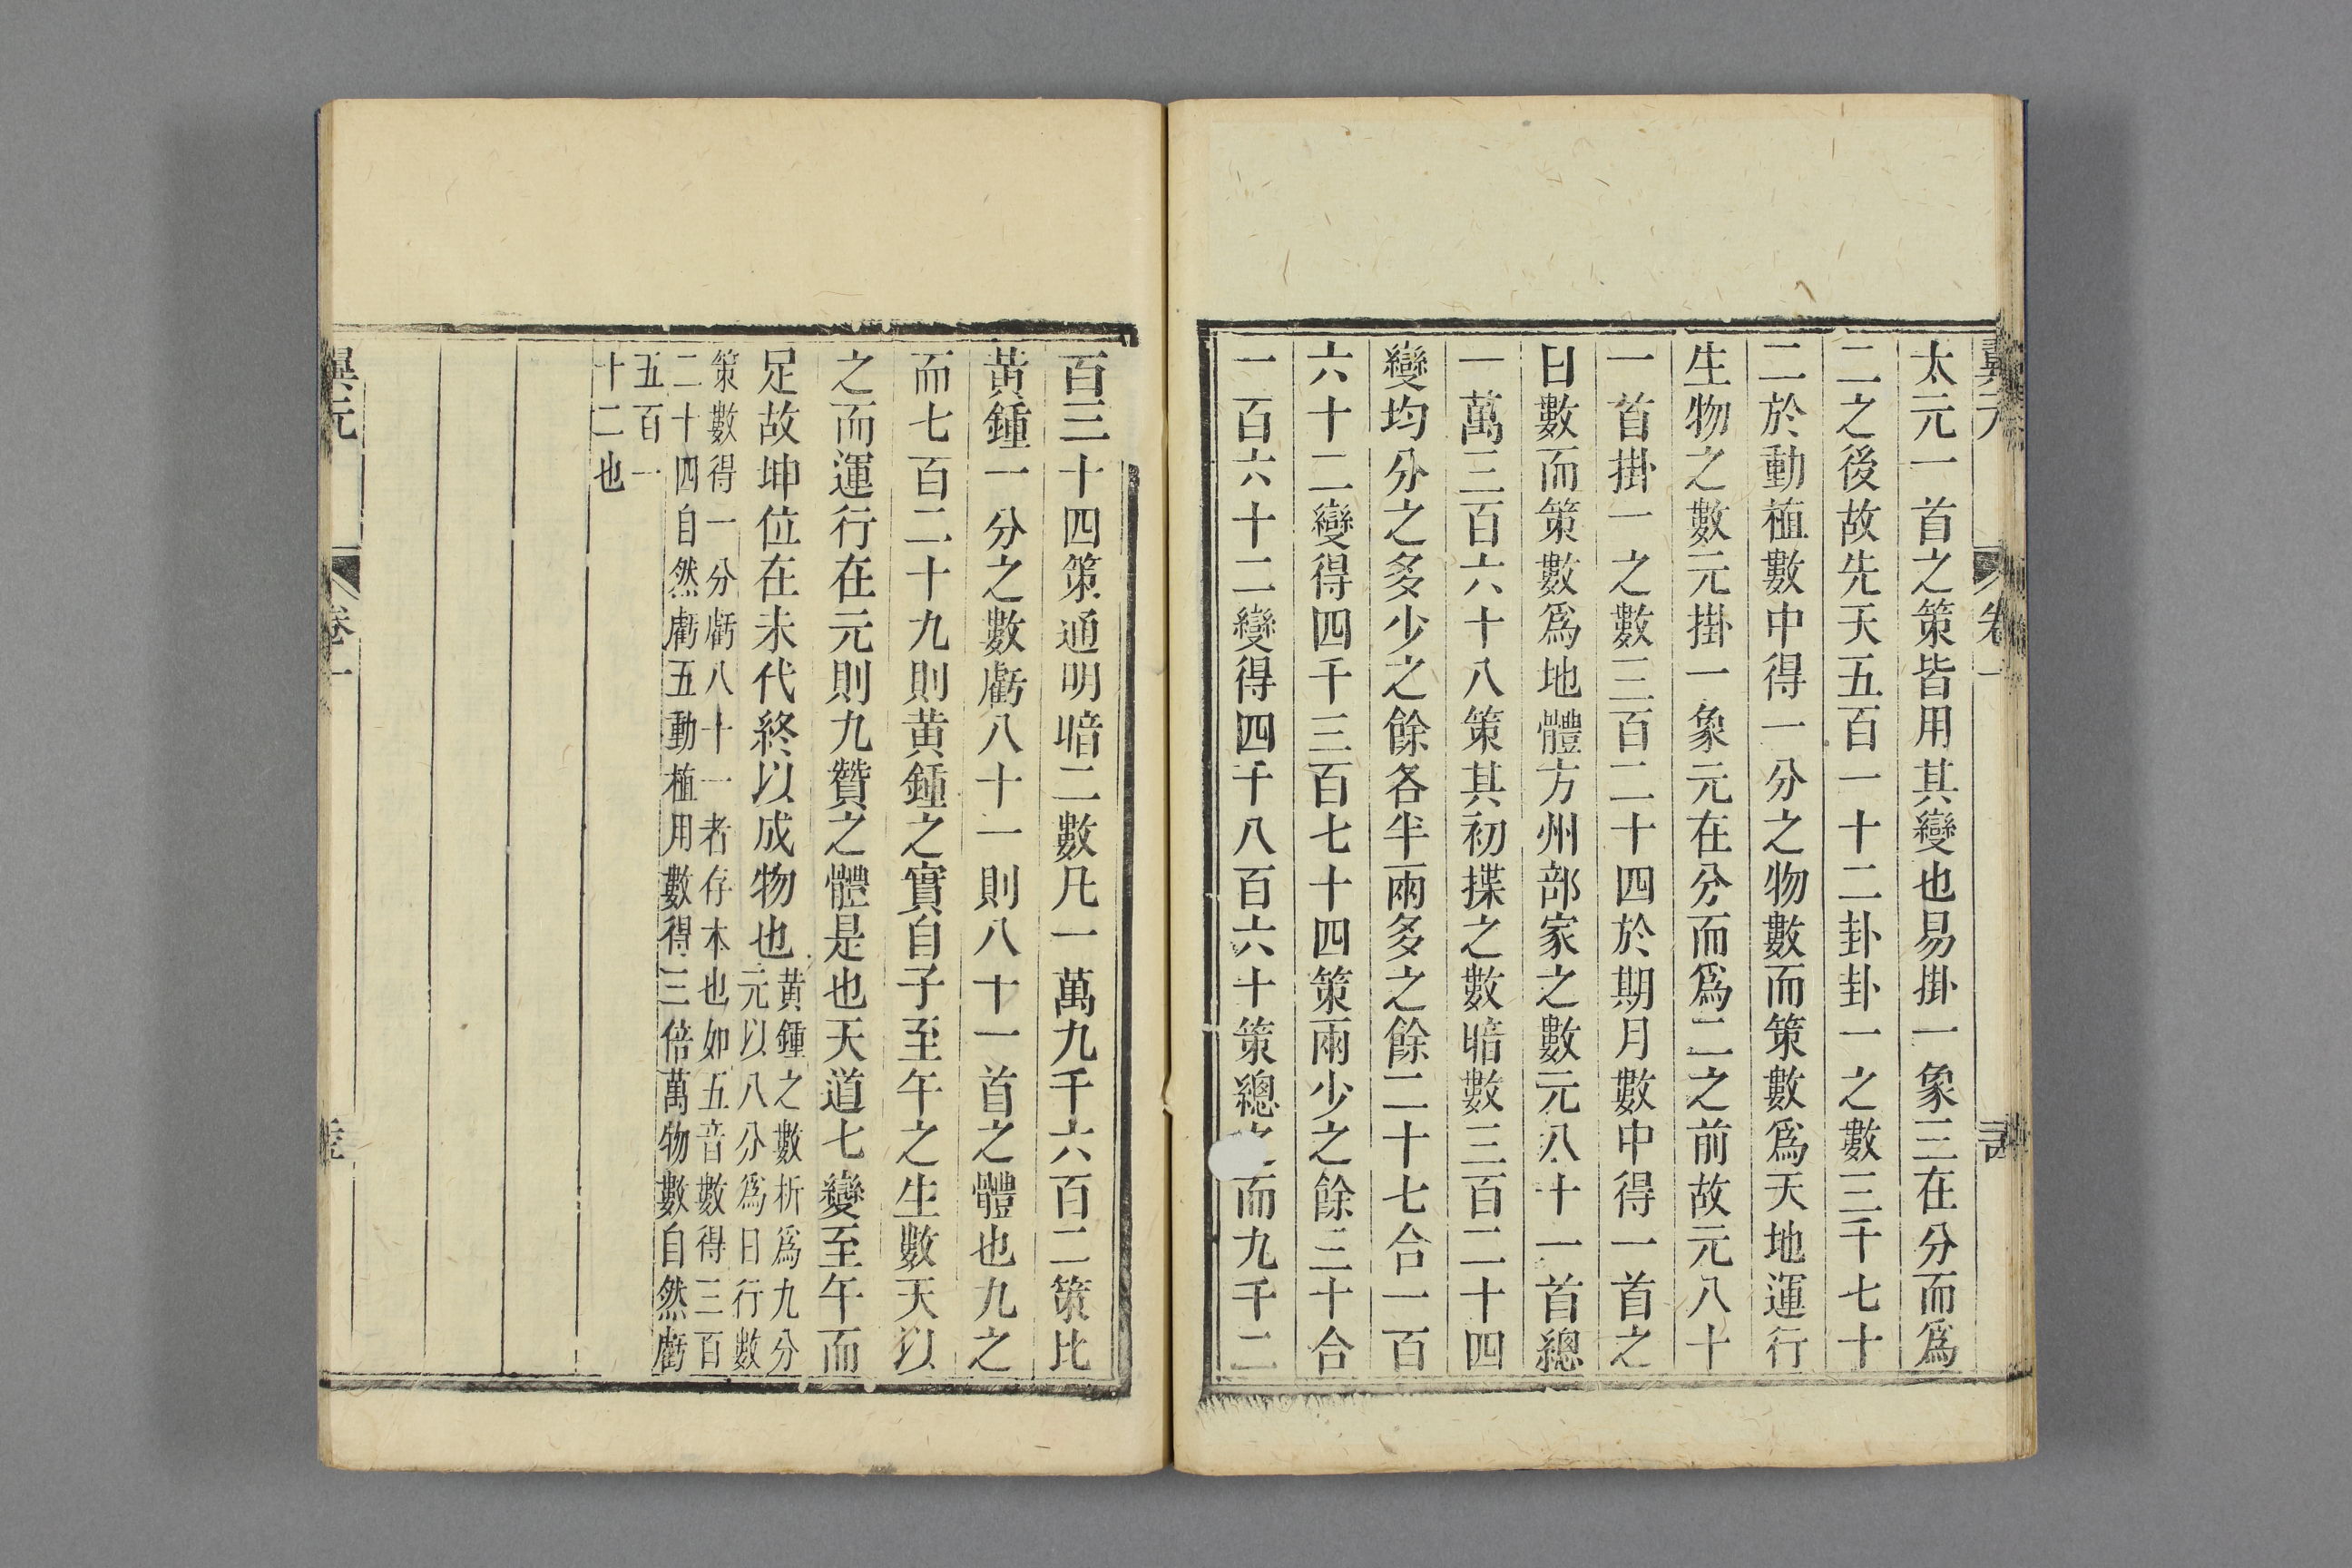 太元一首之策皆用其變也易掛一象三在分而爲
二之後故先天五百一十二卦卦一之數三千七十
二於動植數中得一分之物數而策數爲天地運行
生物之數元掛一象元在分而爲二之前故元八十
一首掛一之數三百二十四於期月數中得一首之
日數而策數爲地體方州部家之數元八十一首總
一萬三百六十八策其初揲之數暗數三百二十四
變均分之多少之餘各半兩多之餘二十七合一百
六十二變得四千三百七十四策兩少之餘三十合
一百六十二變得四千八百六十策總而九千二
百三十四策通明暗二數凡一萬九千六百二策比
黃鍾一分之數虧八十一則八十一首之體也九之
而七百二十九則黃鍾之實自子至午之生數天以
之而運行在元則九贊之體是也天道七變至午而
足故坤位在未代終以成物也
黃鍾之數析爲九分
元以八分爲日行數
策數得一分虧八十一者存本也如五音數得三百
二十四自然虧五動植用數得三倍萬物數自然虧
五百一
十二也
翼元
卷一
翼元
卷一